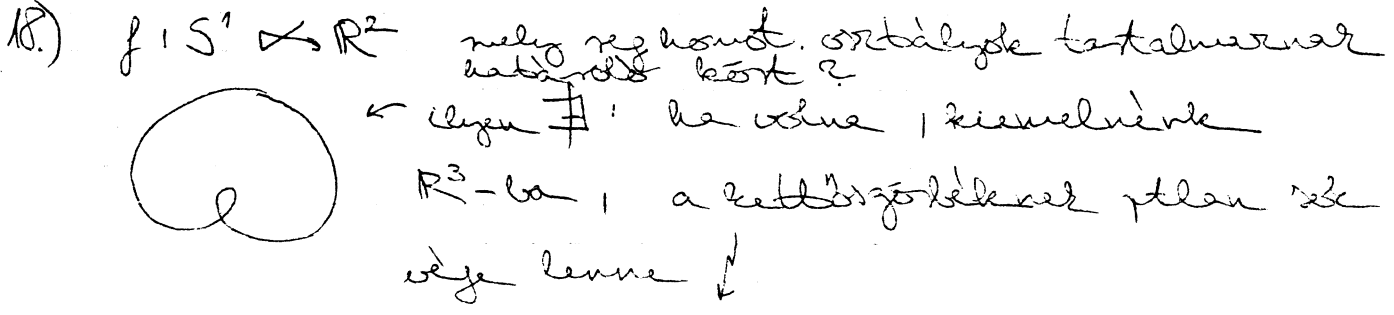 18.) f : S¹ ↬ ℝ² mely reg homot. osztályok tartalmaznak
határoló kört?
← ilyen ∄ : ha volna, kiemelnénk
ℝ³-ba, a kettősgörbéknek ptlan sok
vége lenne ↯